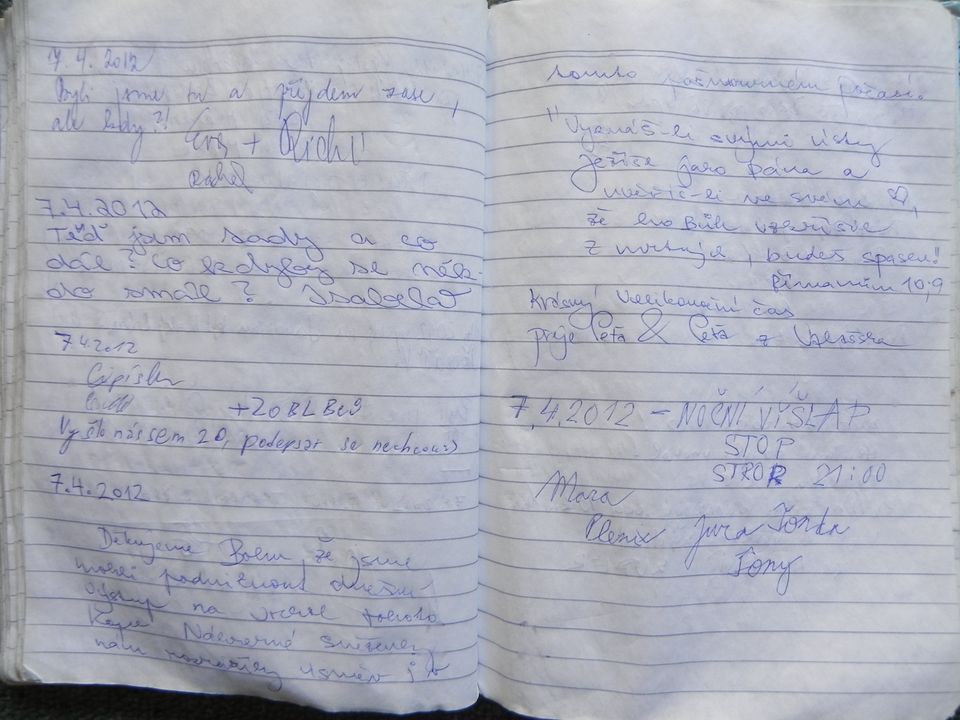 7.4.2012
Byli jsme tu a přijdem zase,
ale kdy?!
Eva + Richi
Ráchel
7.4.2012
Teď jsem tady a co
dál? Co kdyby se něk-
do smál? Isabela
7.4.2012
Cipísek
+20 BLBců
Vyšlo nás sem 20, podepsat se nechcou:)
7.4.2012
Děkujeme Bohu že jsme
mohli podniknout dnešní
výstup na vrchol tohoto
kopce
nám úsměv i v
tomto počasí.
"Vyznáš-li svými ústy
Ježíše jako Pána a
uvěříš-li ve svém ♡,
že ho Bůh vzkřísil
z mrtvých, budeš spasen!
Římanům 10,9
Krásný Velikonoční čas
přeje Péťa & Péťa z
7.4.2012 - NOČNÍ VÝŠLAP
STOP
21:00
Mara
Jura Tonda
Tony